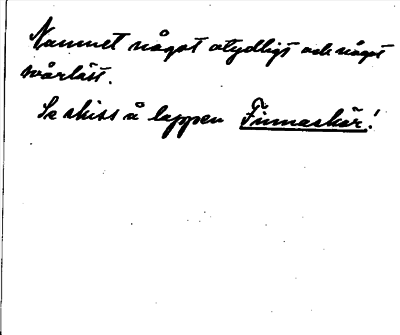 Namnet något otydligt och något
svårläst.
Se skiss å lappen Finnaskär!